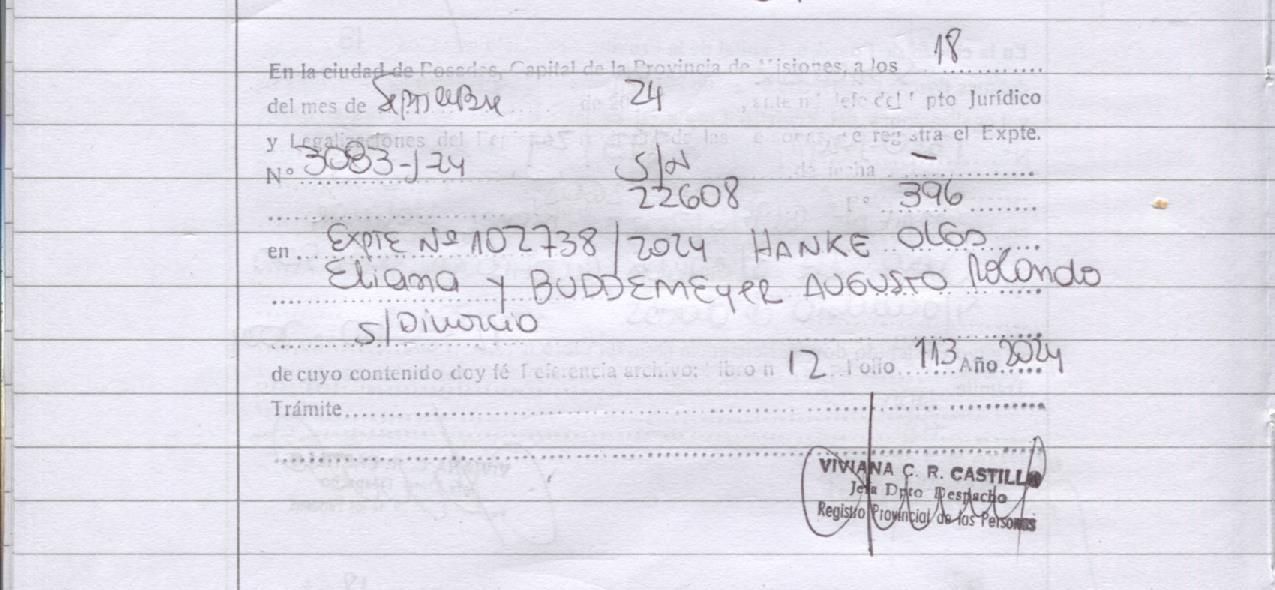 En la ciudad de Posadas, Capital de la Provincia de Misiones, a los 18
del mes de Septiembre de 24, ante mí Jefe del Dpto Jurídico
y Legalizaciones del de las se registra el Expte.
Nº 3083-/24 S/N de fecha -
22608 Fº 396
en Expte Nº 102738/2024 HANKE OLGA
Eliana y BUDDEMEYER AUGUSTO Rolando
S/Divorcio
de cuyo contenido doy fé Referencia archivo: Libro n 12 Folio 113 Año 2024
Trámite
VIVIANA C. R. CASTILLO
Jefa Dpto Despacho
Registro Provincial de las Personas